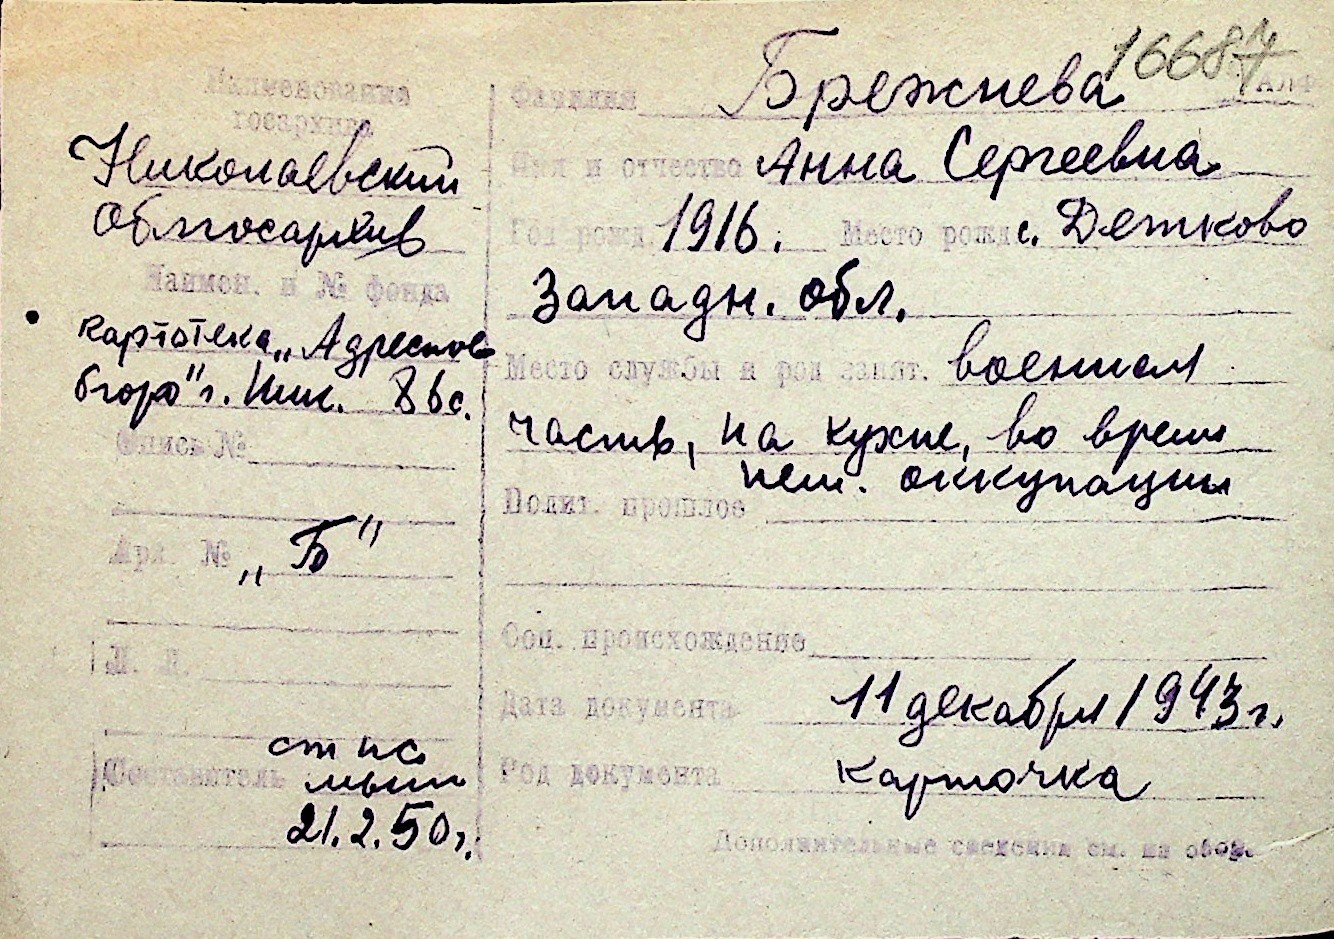 Наименование
госархива
Николаевский
Облгосархив
Наимен. и № фонда
картотека „Адресное
бюро" г. Ник.
Опись №
Арх. № „Б"
Л. л.
Составитель
21.2.50г.
16687
Фамилия Брежнева
Имя и отчество Анна Сергеевна
Год рожд. 1916. Место рожд. с. Детково
Западн. обл.
Место службы и род занят. военная
часть, на кухне, во время
нем. оккупации
Полит. прошлое
Соц. происхождение
Дата документа 11 декабря 1943 г.
Род документа карточка
Дополнительные сведения см. на обор.